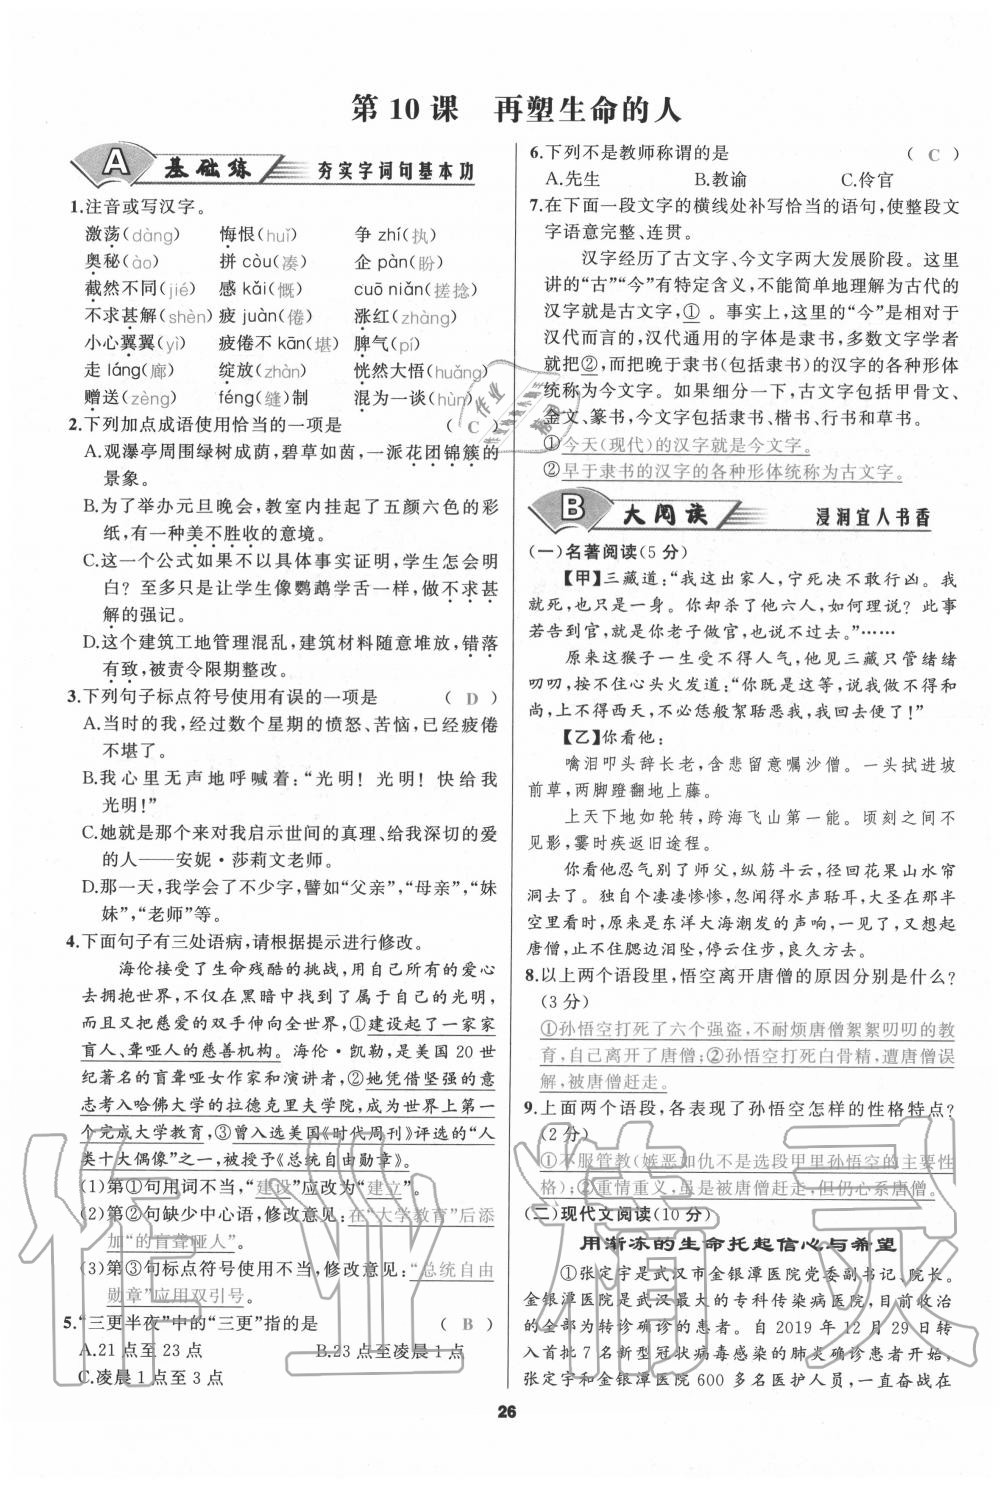 第 10 课　再塑生命的人
A 基础练 夯实字词句基本功
1.注音或写汉字。
激荡(dàng)　悔恨(huǐ)　争 zhí(执)
奥秘(ào)　拼 còu(凑)　企 pàn(盼)
截然不同(jié)　感 kǎi(慨)　cuō niǎn(搓捻)
不求甚解(shèn)　疲 juàn(倦)　涨红(zhàng)
小心翼翼(yì)　疲倦不 kān(堪)　脾气(pí)
走 láng(廊)　绽放(zhàn)　恍然大悟(huǎng)
赠送(zèng)　féng(缝)制　混为一谈(hùn)
2.下列加点成语使用恰当的一项是　( C )
A.观瀑亭周围绿树成荫，碧草如茵，一派花团锦簇的
景象。
B.为了举办元旦晚会，教室内挂起了五颜六色的彩
纸，有一种美不胜收的意境。
C.这一个公式如果不以具体事实证明，学生怎会明
白？至多只是让学生像鹦鹉学舌一样，做不求甚
解的强记。
D.这个建筑工地管理混乱，建筑材料随意堆放，错落
有致，被责令限期整改。
3.下列句子标点符号使用有误的一项是　( D )
A.当时的我，经过数个星期的愤怒、苦恼，已经疲倦
不堪了。
B.我心里无声地呼喊着：“光明！光明！快给我
光明！”
C.她就是那个来对我启示世间的真理、给我深切的爱
的人——安妮·莎莉文老师。
D.那一天，我学会了不少字，譬如“父亲”，“母亲”，“妹
妹”，“老师”等。
4.下面句子有三处语病，请根据提示进行修改。
海伦接受了生命残酷的挑战，用自己所有的爱心
去拥抱世界，不仅在黑暗中找到了自己的光明，
而且又把慈爱的双手伸向全世界，①建设起了一家家
盲人、聋哑人的慈善机构。海伦·凯勒，是美国 20 世
纪著名的盲聋哑女作家和演讲者，②她凭借坚强的意
志考入哈佛大学的拉德克里夫学院，成为世界上第一
个完成大学教育，③曾入选美国《时代周刊》评选的“人
类十大偶像”之一，被授予《总统自由勋章》。
(1)第①句用词不当，“建设”应改为“建立”。
(2)第②句缺少中心语，修改意见：在“大学教育”后添
加“的盲聋哑人”。
(3)第③句标点符号使用不当，修改意见：“总统自由
勋章”应用双引号。
5.“三更半夜”中的“三更”指的是　( B )
A.21 点至 23 点　B.23 点至凌晨 1 点
C.凌晨 1 点至 3 点
6.下列不是教师称谓的是　( C )
A.先生　B.教谕　C.伶官
7.在下面一段文字的横线处补写恰当的语句，使整段文
字语意完整、连贯。
汉字经历了古文字、今文字两大发展阶段。这里
讲的“古”“今”有特定含义，不能简单地理解为古代的
汉字就是古文字，①。事实上，这里的“今”是相对于
汉代而言的，汉代通用的字体是隶书，多数文字学者
就把②，而把晚于隶书(包括隶书)的汉字的各种形体
统称为今文字。如果细分一下，古文字包括甲骨文、
金文、篆书，今文字包括隶书、楷书、行书和草书。
①今天(现代)的汉字就是今文字。
②早于隶书的汉字的各种形体统称为古文字。
B 大阅读 浸润宜人书香
(一)名著阅读(5 分)
【甲】三藏道：“我这出家人，宁死决不敢行凶。我
就死，也只是一身。你却杀了他六人，如何理说？此事
若告到官，就是你老子做官，也说不过去。”……
原来这猴子一生受不得人气，他见三藏只管绪绪
叨叨，按不住心头火发道：“你既是这等，说我做不得和
尚，上不得西天，不必恁般絮聒恶我，我回去便了！”
【乙】你看他：
噙泪叩头辞长老，含悲留意嘱沙僧。一头拭迸坡
前草，两脚蹬翻地上藤。
上天下地如轮转，跨海飞山第一能。顷刻之间不
见影，霎时疾返旧途程。
你看他忍气别了师父，纵筋斗云，径回花果山水帘
洞去了。独自个凄凄惨惨，忽闻得水声聒耳，大圣在那半
空里看时，原来是东洋大海潮发的声响，一见了，又想起
唐僧，止不住腮边泪坠，停云住步，良久方去。
8.以上两个语段里，悟空离开唐僧的原因分别是什么？
(3 分)
①孙悟空打死了六个强盗，不耐烦唐僧絮絮叨叨的教
育，自己离开了唐僧；②孙悟空打死白骨精，遭唐僧误
解，被唐僧赶走。
9.上面两个语段，各表现了孙悟空怎样的性格特点？
(2 分)
①不服管教(嫉恶如仇不是选段甲里孙悟空的主要性
格)；②重情重义，虽是被唐僧赶走，但仍心系唐僧。
(二)现代文阅读(10 分)
用渐冻的生命托起信心与希望
①张定宇是武汉市金银潭医院党委副书记、院长。
金银潭医院是武汉最大的专科传染病医院，目前收治
的全部为转诊确诊的患者。自 2019 年 12 月 29 日转
入首批 7 名新型冠状病毒感染的肺炎确诊患者开始，
张定宇和金银潭医院 600 多名医护人员，一直奋战在
26
作业精灵